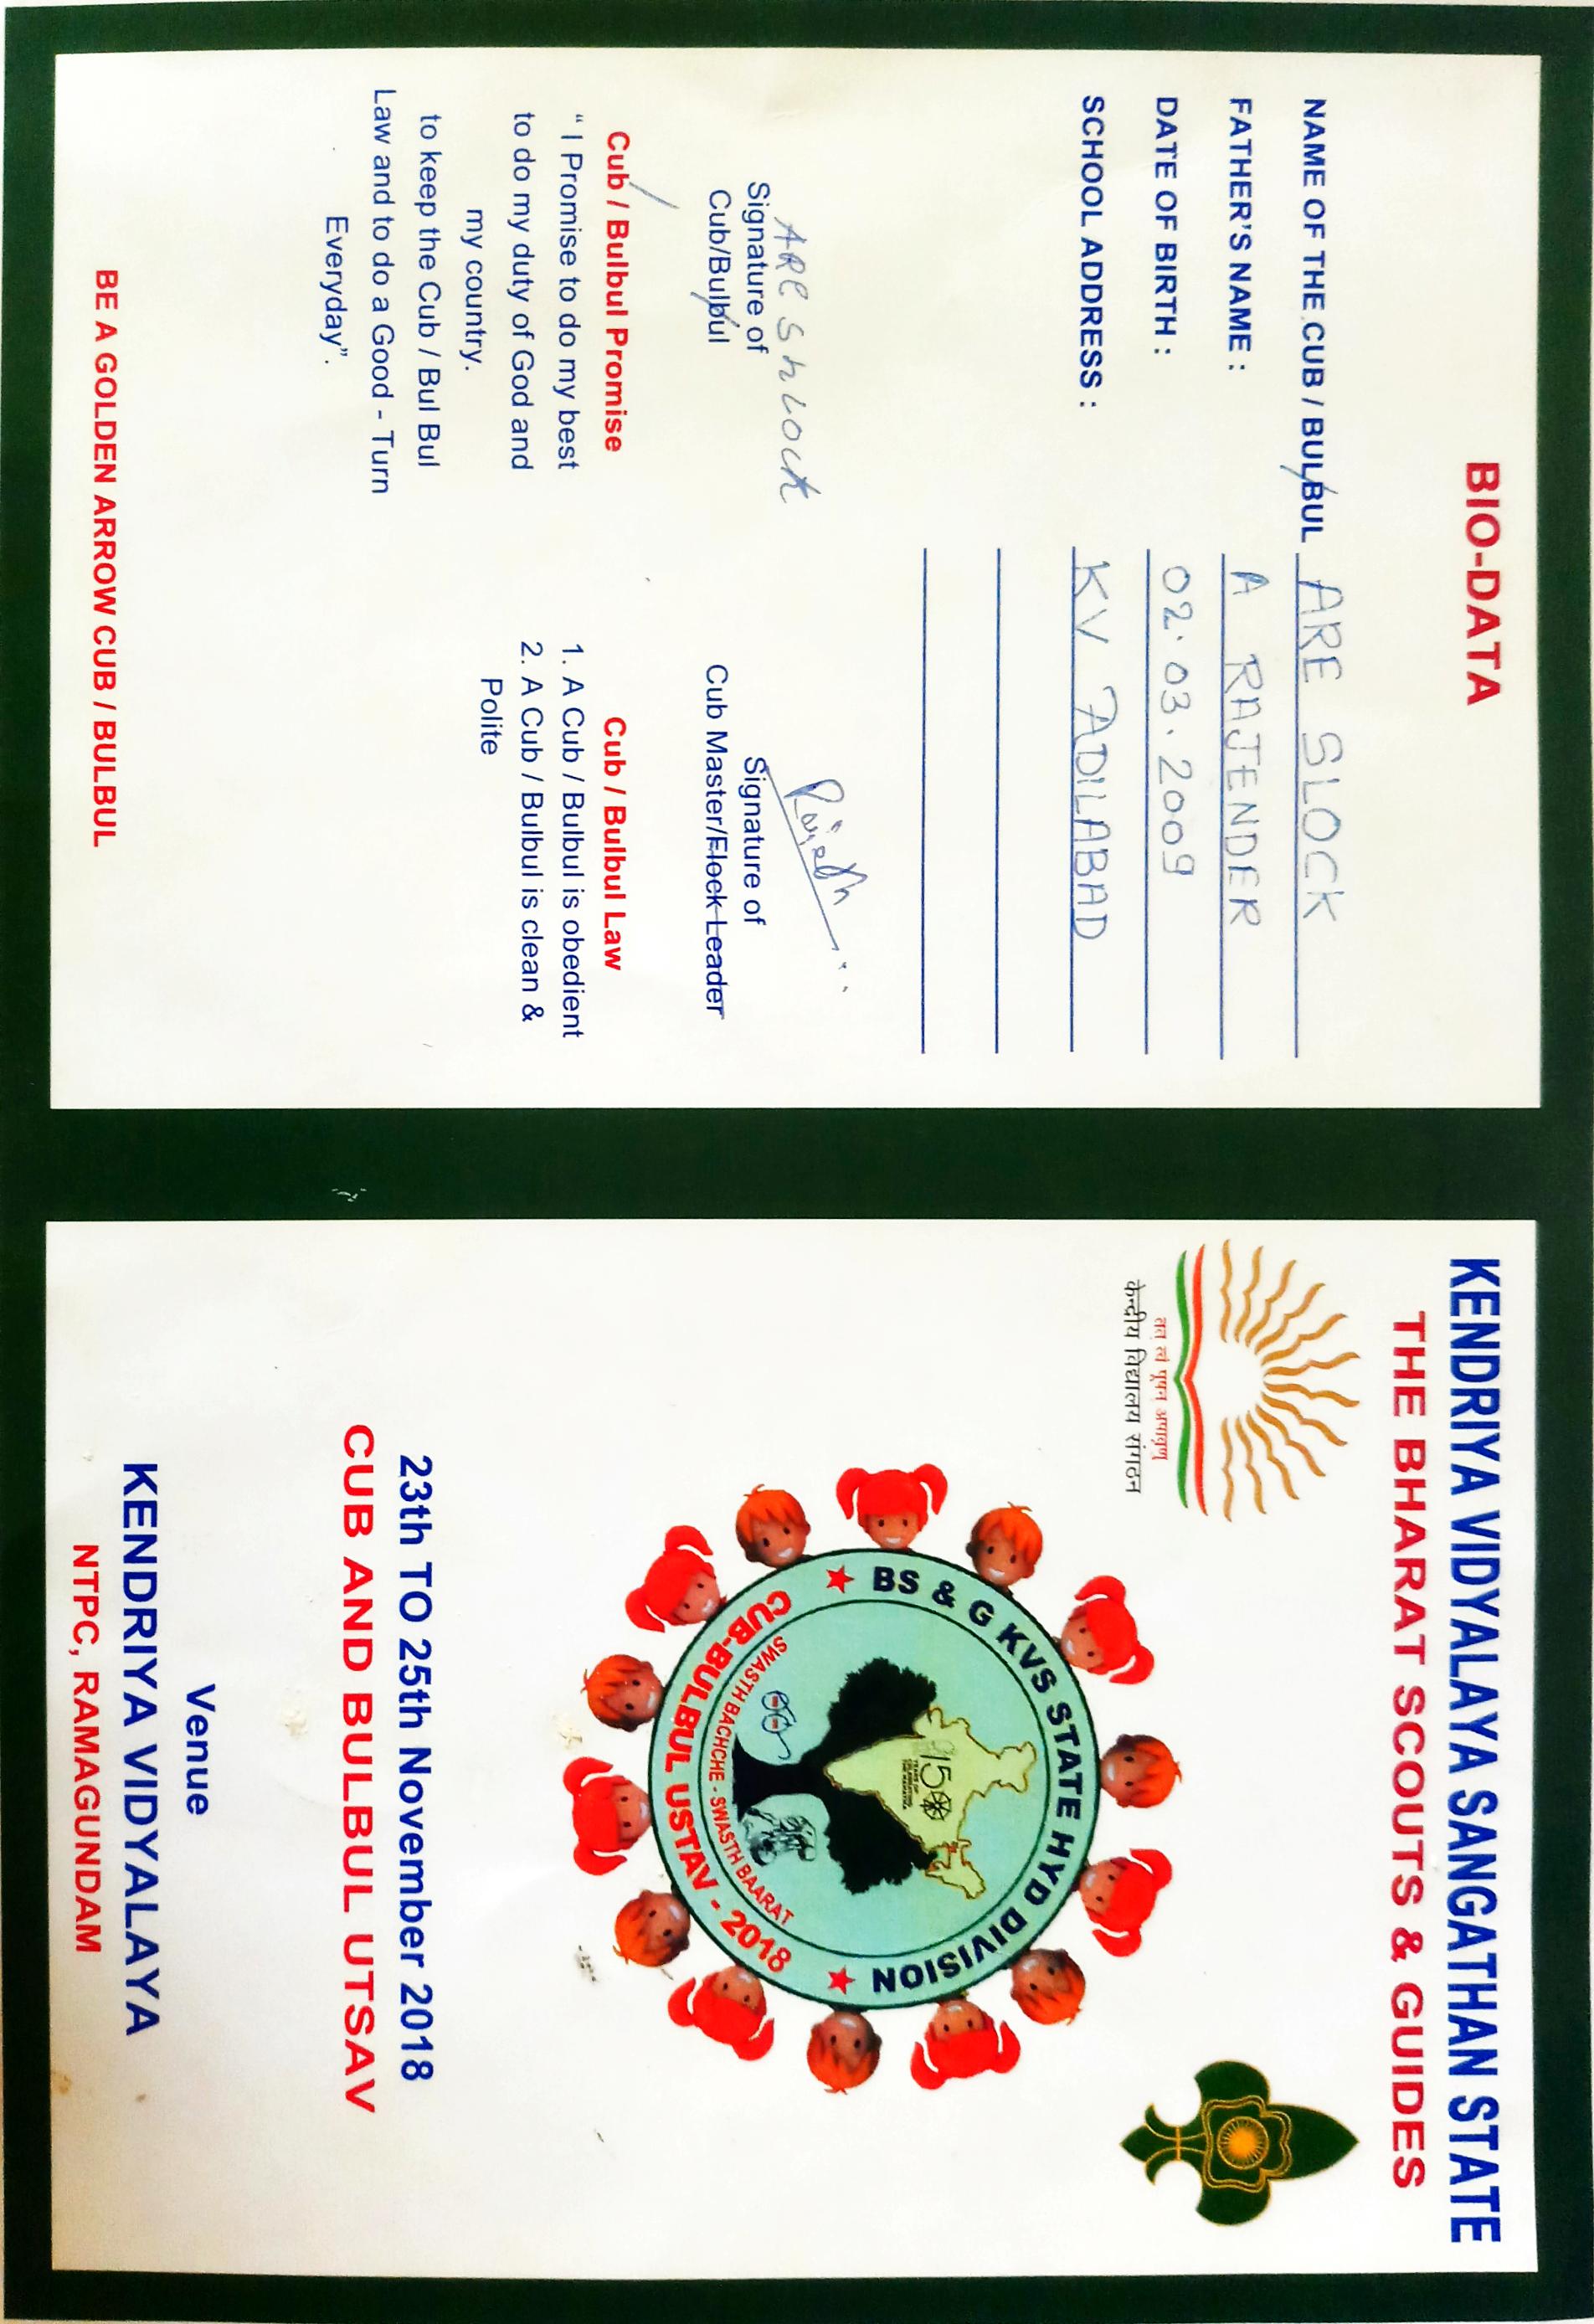 BIO-DATA
NAME OF THE CUB / BULBUL ARE SLOCK
FATHER'S NAME : A RAJENDER
DATE OF BIRTH : 02.03.2009
SCHOOL ADDRESS : KV ADILABAD
ARE ShLOCK
Signature of
Cub/Bulbul
Signature of
Cub Master/Flock Leader
Cub / Bulbul Promise
" I Promise to do my best
to do my duty of God and
my country.
to keep the Cub / Bul Bul
Law and to do a Good - Turn
Everyday".
Cub / Bulbul Law
1. A Cub / Bulbul is obedient
2. A Cub / Bulbul is clean &
Polite
BE A GOLDEN ARROW CUB / BULBUL
KENDRIYA VIDYALAYA SANGATHAN STATE
THE BHARAT SCOUTS & GUIDES
तत् त्वं पूषन् अपावृणु
केन्द्रीय विद्यालय संगठन
BS & G KVS STATE HYD DIVISION
150
YEARS OF
CELEBRATING
THE MAHATMA
SWASTH BACHCHE - SWASTH BAARAT
CUB-BULBUL USTAV - 2018
23th TO 25th November 2018
CUB AND BULBUL UTSAV
Venue
KENDRIYA VIDYALAYA
NTPC, RAMAGUNDAM